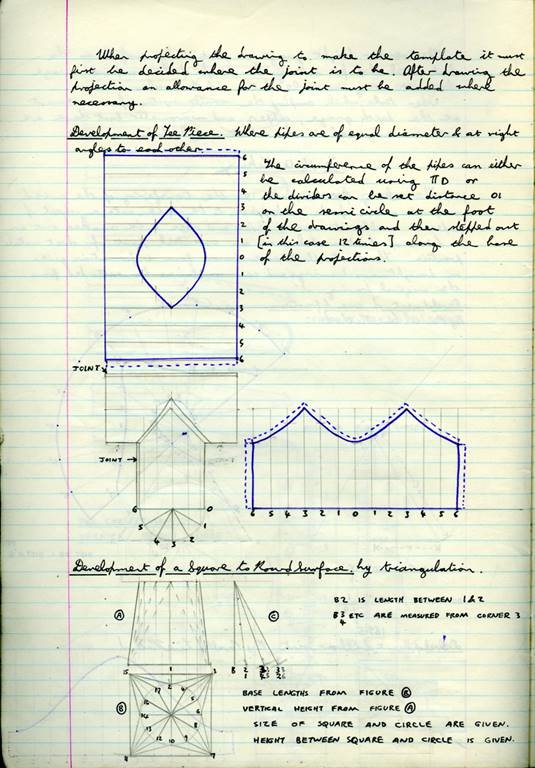 When projecting the drawing to make the template it must
first be decided where the joint is to be. After drawing the
projection an allowance for the joint must be added where
necessary.
Development of Tee Piece. Where pipes are of equal diameter & at right
angles to each other
The circumference of the pipes can either
be calculated using πD or
the dividers can be set distance 01
on the semicircle at the foot
of the drawings and then stepped out
[in this case 12 times] along the base
of the projections.
6
5
4
3
2
1
0
1
2
3
4
5
6
JOINT
JOINT
6 0
5 4 3 2 1
6 5 4 3 2 1 0 1 2 3 4 5 6
Development of a Square to Round Surface by triangulation.
A
C
B2 IS LENGTH BETWEEN 1&2
B3 ETC ARE MEASURED FROM CORNER 3
4
15 1 3 B 2
B
BASE LENGTHS FROM FIGURE B
VERTICAL HEIGHT FROM FIGURE A
SIZE OF SQUARE AND CIRCLE ARE GIVEN.
HEIGHT BETWEEN SQUARE AND CIRCLE IS GIVEN.